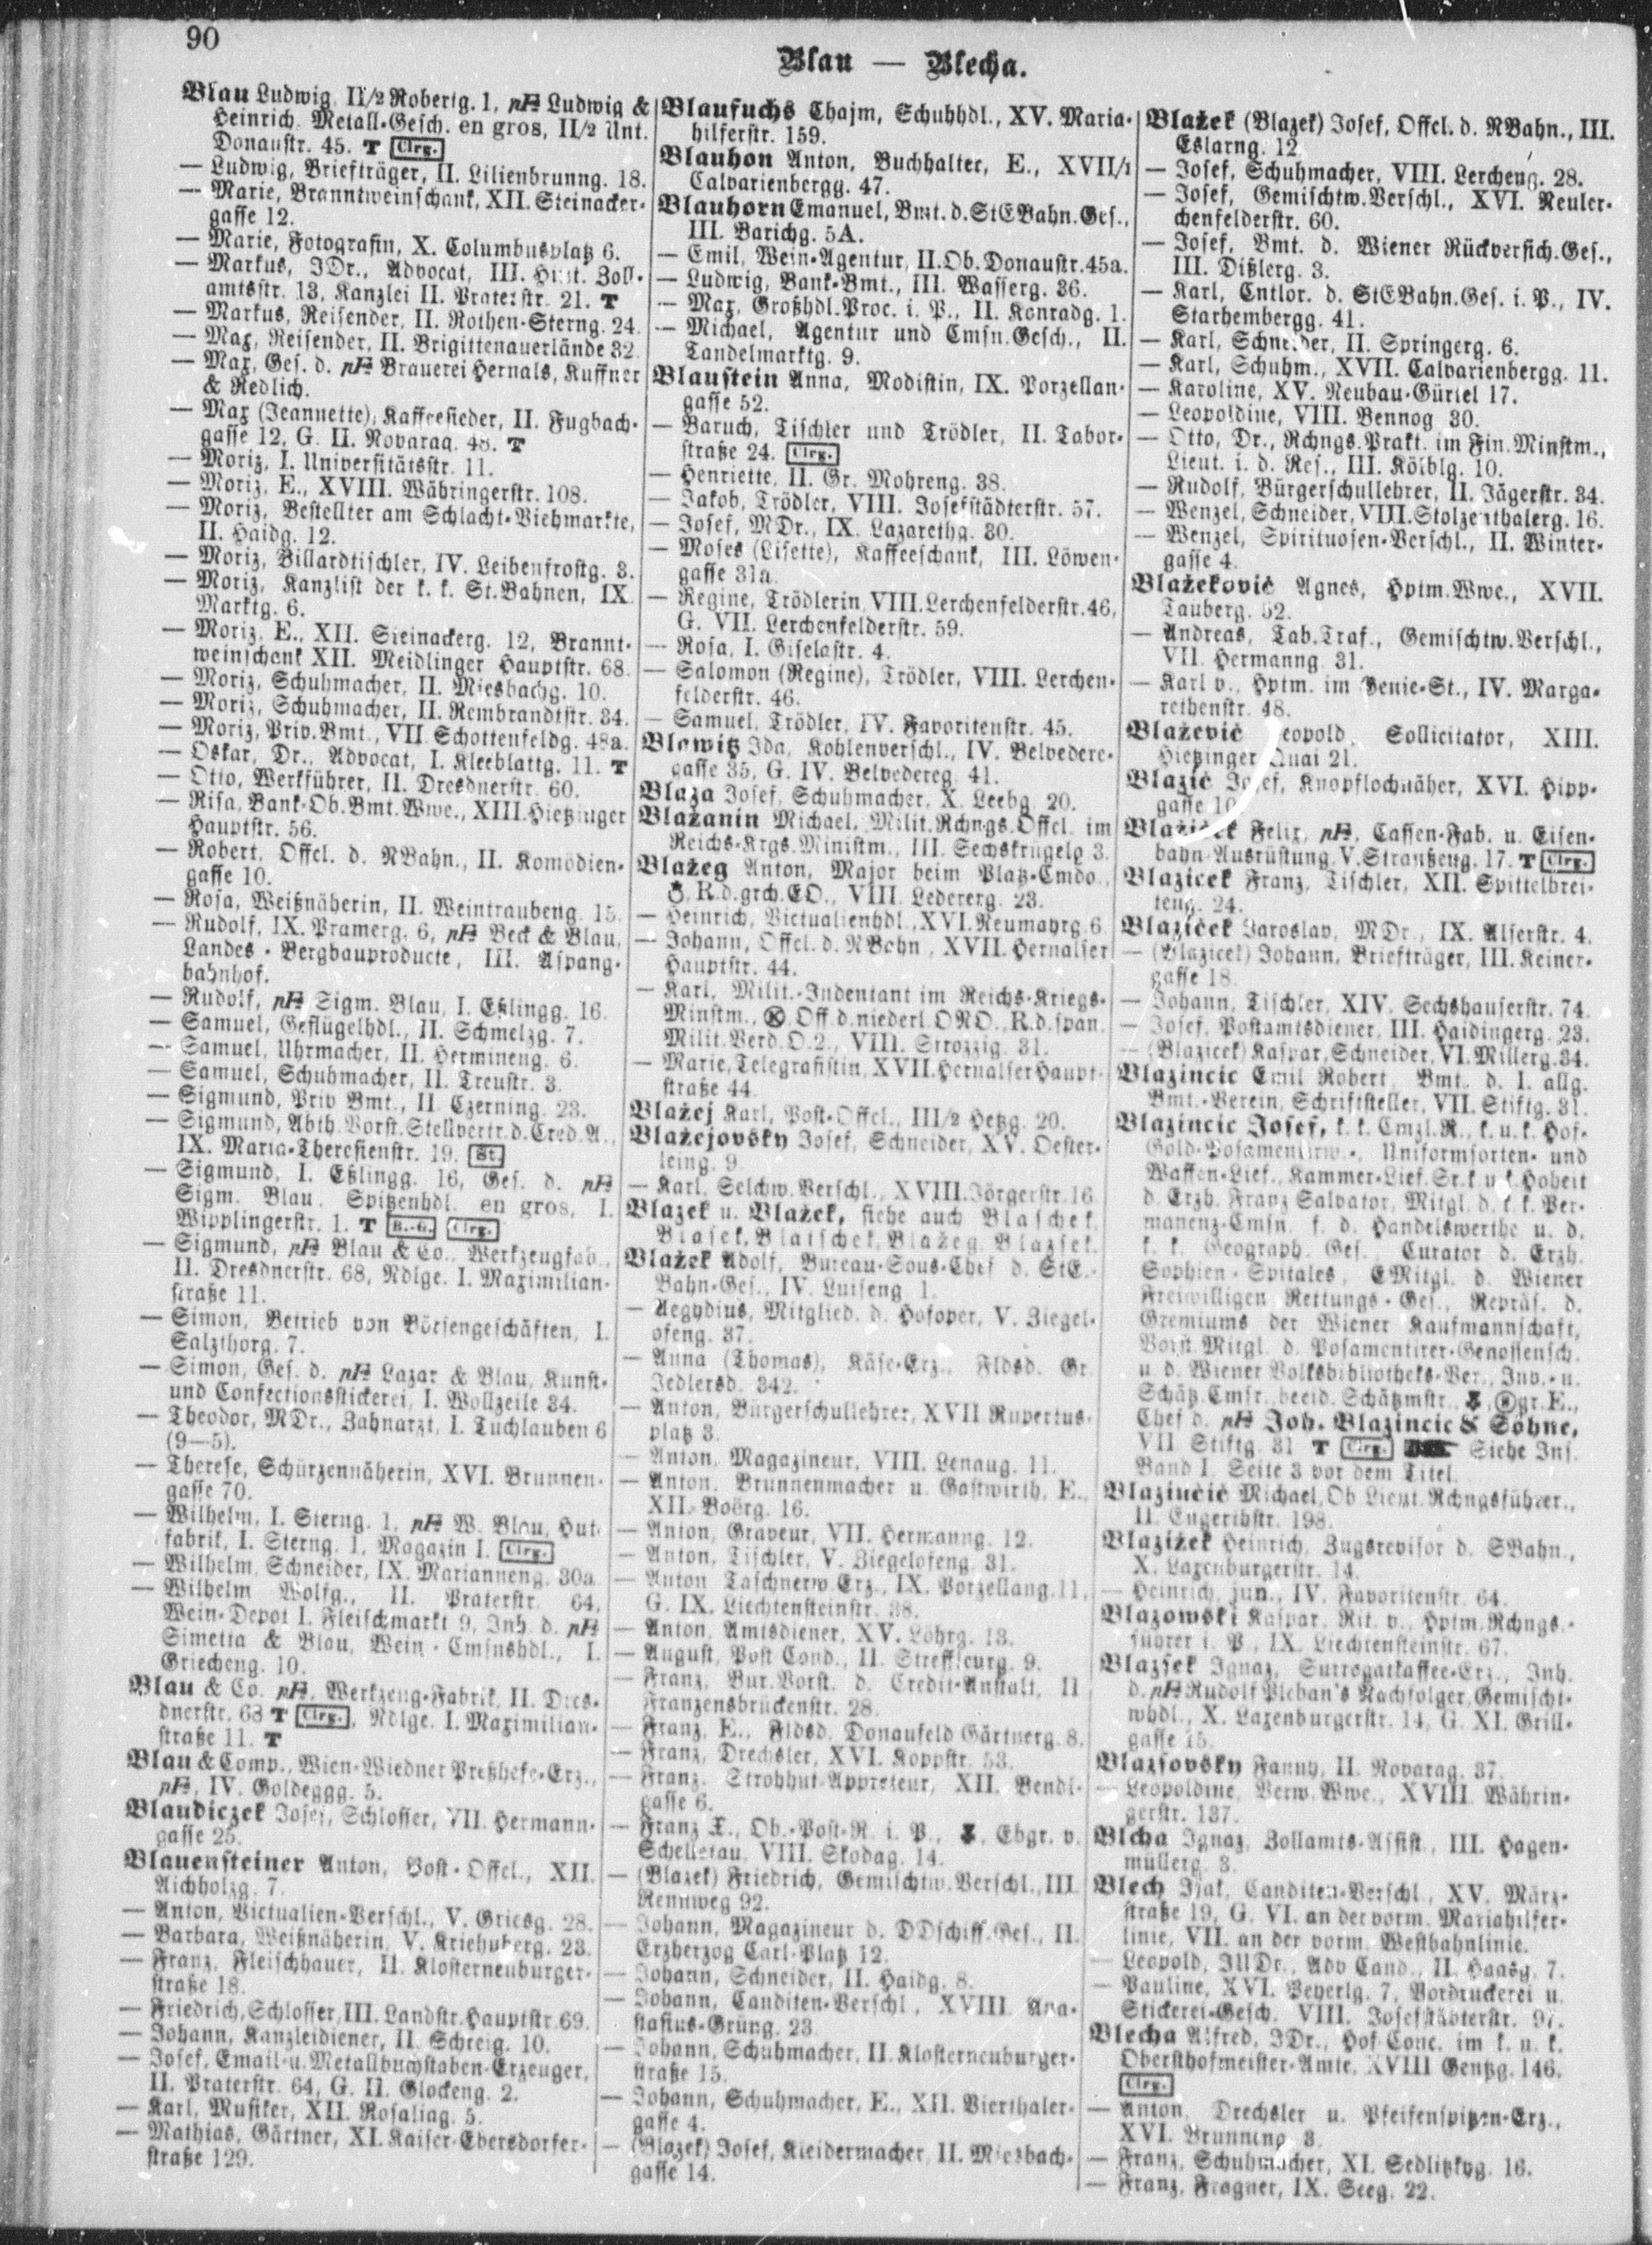 90
Blau — Blecha.
Blau Ludwig, II/2 Robertg. 1, pFa Ludwig &
Heinrich, Metall-Gesch. en gros, II/2 Unt.
Donaustr. 45. T Clrg.
— Ludwig, Briefträger, II. Lilienbrunng. 18.
— Marie, Branntweinschank, XII. Steinacker-
gasse 12.
— Marie, Fotografin, X. Columbusplatz 6.
— Markus, JDr., Advocat, III. Zoll-
amtsstr. 13, Kanzlei II. Praterstr. 21. T
— Markus, Reisender, II. Rothen-Sterng. 24.
— Max, Reisender, II. Brigittenauerlände 32.
— Max, Ges. d. pFa Brauerei Hernals, Kuffner
& Redlich.
— Max (Jeannette), Kaffeesieder, II. Fugbach-
gasse 12, G. II. Novarag. 48. T
— Moriz, I. Universitätsstr. 11.
— Moriz, E., XVIII. Währingerstr. 108.
— Moriz, Bestellter am Schlacht-Viehmarkte,
II. Haidg. 12.
— Moriz, Billardtischler, IV. Leibenfrostg. 3.
— Moriz, Kanzlist der k. k. St.Bahnen, IX.
Marktg. 6.
— Moriz, E., XII. Steinackerg. 12, Brannt-
weinschank XII. Meidlinger Hauptstr. 68.
— Moriz, Schuhmacher, II. Miesbachg. 10.
— Moriz, Schuhmacher, II. Rembrandtstr. 34.
— Moriz, Priv.Bmt., VII. Schottenfeldg. 48a.
— Oskar, Dr., Advocat, I. Kleeblattg. 11. T
— Otto, Werkführer, II. Dresdnerstr. 60.
— Risa, Bank-Ob.Bmt.Wwe., XIII. Hietzinger
Hauptstr. 56.
— Robert, Offcl. d. NBahn., II. Komödien-
gasse 10.
— Rosa, Weißnäherin, II. Weintraubeng. 15.
— Rudolf, IX. Pramerg. 6, pFa Beck & Blau,
Landes-Bergbauproducte, III. Aspang-
bahnhof.
— Rudolf, pFa Sigm. Blau, I. Eßlingg. 16.
— Samuel, Geflügelhdl., II. Schmelzg. 7.
— Samuel, Uhrmacher, II. Hermineng. 6.
— Samuel, Schuhmacher, II. Treustr. 3.
— Sigmund, Priv Bmt., II. Czerning. 23.
— Sigmund, Abth.Vorst.Stellvertr.d.Cred.A.,
IX. Maria-Theresienstr. 19. St.
— Sigmund, I. Eßlingg. 16, Ges. d. pFa
Sigm. Blau, Spitzenhdl. en gros, I.
Wipplingerstr. 1. T B.-G. Clrg.
— Sigmund, pFa Blau & Co., Werkzeugfab.,
II. Dresdnerstr. 68, Ndlge. I. Maximilian-
straße 11.
— Simon, Betrieb von Börsengeschäften, I.
Salzthorg. 7.
— Simon, Ges. d. pFa Lazar & Blau, Kunst-
und Confectionsstickerei, I. Wollzeile 34.
— Theodor, MDr., Zahnarzt, I. Tuchlauben 6
(9—5).
— Therese, Schürzennäherin, XVI. Brunnen-
gasse 70.
— Wilhelm, I. Sterng. 1, pFa W. Blau, Hut-
fabrik, I. Sterng. 1, Magazin I. Clrg.
— Wilhelm, Schneider, IX. Marianneng. 30a.
— Wilhelm Wolfg., II. Praterstr. 64,
Wein-Depot I. Fleischmarkt 9, Inh. d. pFa
Simetta & Blau, Wein-Cmsnshdl., I.
Griecheng. 10.
Blau & Co. pFa, Werkzeug-Fabrik, II. Dres-
dnerstr. 68 T Clrg., Ndlge. I. Maximilian-
straße 11. T
Blau & Comp., Wien-Wiedner Preßhefe-Erz.,
pFa, IV. Goldeggg. 5.
Blaudiczek Josef, Schlosser, VII. Hermann-
gasse 25.
Blauensteiner Anton, Post-Offcl., XII.
Aichholzg. 7.
— Anton, Victualien-Verschl., V. Griesg. 28.
— Barbara, Weißnäherin, V. Kriehuberg. 23.
— Franz, Fleischhauer, II. Klosterneuburger-
straße 18.
— Friedrich, Schlosser, III. Landstr. Hauptstr. 69.
— Johann, Kanzleidiener, II. Schreig. 10.
— Josef, Email-u. Metallbuchstaben-Erzeuger,
II. Praterstr. 64, G. II. Glockeng. 2.
— Karl, Musiker, XII. Rosaliag. 5.
— Mathias, Gärtner, XI. Kaiser-Ebersdorfer-
straße 129.
Blaufuchs Chajm, Schuhhdl., XV. Maria-
hilferstr. 159.
Blauhon Anton, Buchhalter, E., XVII/1
Calvarienbergg. 47.
Blauhorn Emanuel, Bmt. d. StEBahn.Ges.,
III. Barichg. 5A.
— Emil, Wein-Agentur, II. Ob. Donaustr. 45a.
— Ludwig, Bank-Bmt., III. Wasserg. 36.
— Max, Großhdl.Proc. i. P., II. Konradg. 1.
— Michael, Agentur und Cmsn.Gesch., II.
Tandelmarktg. 9.
Blaustein Anna, Modistin, IX. Porzellan-
gasse 52.
— Baruch, Tischler und Trödler, II. Tabor-
straße 24. Clrg.
— Henriette, II. Gr. Mohreng. 38.
— Jakob, Trödler, VIII. Josefstädterstr. 57.
— Josef, MDr., IX. Lazarethg. 30.
— Moses (Lisette), Kaffeeschank, III. Löwen-
gasse 31a.
— Regine, Trödlerin, VIII. Lerchenfelderstr. 46,
G. VII. Lerchenfelderstr. 59.
— Rosa, I. Giselastr. 4.
— Salomon (Regine), Trödler, VIII. Lerchen-
felderstr. 46.
— Samuel, Trödler, IV. Favoritenstr. 45.
Blawitz Ida, Kohlenverschl., IV. Belvedere-
gasse 35, G. IV. Belvedereg. 41.
Blaza Josef, Schuhmacher, X. Leebg. 20.
Blažanin Michael, Milit.Rchngs.Offcl. im
Reichs-Krgs.Ministm., III. Sechskrügelg. 3.
Blažeg Anton, Major beim Platz-Cmdo.,
R.d.grch.EO., VIII. Ledererg. 23.
— Heinrich, Victualienhdl., XVI. Neumayrg. 6.
— Johann, Offcl. d. NBahn, XVII. Hernalser
Hauptstr. 44.
— Karl, Milit.-Indentant im Reichs-Kriegs-
Minstm., Off.d.niederl.ONO., R.d.span.
Milit.Verd.O.2., VIII. Strozzig. 31.
— Marie, Telegrafistin, XVII. Hernalser Haupt-
straße 44.
Blažej Karl, Post-Offcl., III/2 Hetzg. 20.
Blažejovsky Josef, Schneider, XV. Oester-
leing. 9.
— Karl, Selchw.Verschl., XVIII. Jörgerstr. 16.
Blazek u. Blažek, siehe auch Blaschek,
Blasek, Blatschek, Blažeg, Blazsek.
Blažek Adolf, Bureau-Sous-Chef d. StE.-
Bahn-Ges., IV. Luiseng. 1.
— Aegydius, Mitglied. d. Hofoper, V. Ziegel-
ofeng. 37.
— Anna (Thomas), Käse-Erz., Fldsd. Gr.
Jedlersd. 342.
— Anton, Bürgerschullehrer, XVII. Rupertus-
platz 3.
— Anton, Magazineur, VIII. Lenaug. 11.
— Anton, Brunnenmacher u. Gastwirth, E.,
XII. Boërg. 16.
— Anton, Graveur, VII. Hermanng. 12.
— Anton, Tischler, V. Ziegelofeng. 31.
— Anton Taschnerw.Erz., IX. Porzellang. 11,
G. IX. Liechtensteinstr. 38.
— Anton, Amtsdiener, XV. Löhrg. 13.
— August, Post Cond., II. Streffleurg. 9.
— Franz, Bur.Vorst. d. Credit-Anstalt, II
Franzensbrückenstr. 28.
— Franz, E., Fldsd. Donaufeld Gärtnerg. 8.
— Franz, Drechsler, XVI. Koppstr. 53.
— Franz, Strohhut-Appreteur, XII. Bendl-
gasse 6.
— Franz X., Ob.-Post-R. i. P., Ebgr. v.
Schelletau, VIII. Skodag. 14.
— (Blazek) Friedrich, Gemischtw.Verschl., III
Rennweg 92.
— Johann, Magazineur d. DDschiff.Ges., II.
Erzherzog Carl-Platz 12.
— Johann, Schneider, II. Haidg. 8.
— Johann, Canditen-Verschl., XVIII. Ana-
stasius-Grüng. 23.
— Johann, Schuhmacher, II. Klosterneuburger-
straße 15.
— Johann, Schuhmacher, E., XII. Vierthaler-
gasse 4.
— (Blazek) Josef, Kleidermacher, II. Miesbach-
gasse 14.
Blažek (Blazek) Josef, Offcl. d. NBahn., III.
Eslarng. 12
— Josef, Schuhmacher, VIII. Lercheng. 28.
— Josef, Gemischtw.Verschl., XVI. Neuler-
chenfelderstr. 60.
— Josef, Bmt. d. Wiener Rückversich.Ges.,
III. Dißlerg. 3.
— Karl, Cntlor. d. StEBahn.Ges. i. P., IV.
Starhembergg. 41.
— Karl, Schneider, II. Springerg. 6.
— Karl, Schuhm., XVII. Calvarienbergg. 11.
— Karoline, XV. Neubau-Gürtel 17.
— Leopoldine, VIII. Bennog. 30.
— Otto, Dr., Rchngs.Prakt. im Fin.Minstm.,
Lieut. i. d. Res., III. Kölblg. 10.
— Rudolf, Bürgerschullehrer, II. Jägerstr. 34.
— Wenzel, Schneider, VIII. Stolzenthalerg. 16.
— Wenzel, Spirituosen-Verschl., II. Winter-
gasse 4.
Blažeković Agnes, Hptm.Wwe., XVII.
Tauberg. 52.
— Andreas, Tab.Traf., Gemischtw.Verschl.,
VII. Hermanng. 31.
— Karl v., Hptm. im Genie-St., IV. Marga-
rethenstr. 48.
Blažević Leopold, Sollicitator, XIII.
Hietzinger Quai 21.
Blazić Josef, Knopflochnäher, XVI. Hipp-
gasse 10
Blažiček Felix, pFa, Cassen-Fab. u. Eisen-
bahn-Ausrüstung, V. Straußeng. 17. T Clrg.
Blazicek Franz, Tischler, XII. Spittelbrei-
teng. 24.
Blaziček Jaroslav, MDr., IX. Alserstr. 4.
— (Blazicek) Johann, Briefträger, III. Keiner-
gasse 18.
— Johann, Tischler, XIV. Sechshauserstr. 74.
— Josef, Postamtsdiener, III. Haidingerg. 23.
— (Blazicek) Kaspar, Schneider, VI. Millerg. 34.
Blazincic Emil Robert, Bmt. d. I. allg.
Bmt.-Verein, Schriftsteller, VII. Stiftg. 31.
Blazincic Josef, k. k. Cmzl.R., k. u. k. Hof-
Gold-Posamentirw.-, Uniformsorten- und
Waffen-Lief., Kammer-Lief. Sr. k. u. k. Hoheit
d. Erzh. Franz Salvator, Mitgl. d. k. k. Per-
manenz-Cmsn. f. d. Handelswerthe u. d.
k. k. Geograph. Ges., Curator d. Erzh.
Sophien-Spitales, EMitgl. d. Wiener
Freiwilligen Rettungs-Ges., Repräs. d.
Gremiums der Wiener Kaufmannschaft,
Vorst.Mitgl. d. Posamentirer-Genossensch.
u. d. Wiener Volksbibliotheks-Ver., Inv.- u.
Schätz.Cmsr., beeid. Schätzmstr., gr. E.,
Chef d. pFa Joh. Blazincic & Söhne,
VII. Stiftg. 31 T Clrg. Siehe Ins.
Band I. Seite 3 vor dem Titel.
Blazinčić Michael, Ob.Lieut.Rchngsführer.,
II. Engerthstr. 198.
Blazižek Heinrich, Zugsrevisor d. SBahn.,
X. Laxenburgerstr. 14.
— Heinrich, jun., IV. Favoritenstr. 64.
Blazowski Kaspar, Rit. v., Hptm.Rchngs.-
führer i. P., IX. Liechtensteinstr. 67.
Blazsek Ignaz, Surrogatkaffee-Erz., Inh.
d. pFa Rudolf Pleban's Nachfolger, Gemischt-
whdl., X. Laxenburgerstr. 14, G. XI. Grill-
gasse 15.
Blazsovsky Fanny, II. Novarag. 37.
— Leopoldine, Verw.Wwe., XVIII. Währin-
gerstr. 137.
Blcha Ignaz, Zollamts-Assist., III. Hagen-
müllerg. 3.
Blech Isak, Canditen-Verschl., XV. März-
straße 19, G. VI. an der vorm. Mariahilfer-
linie, VII. an der vorm. Westbahnlinie.
— Leopold, JllDr., Adv Cand., II. Haasg. 7.
— Pauline, XVI. Beyerlg. 7, Vordruckerei u.
Stickerei-Gesch. VIII. Josefstädterstr. 97.
Blecha Alfred, JDr., Hof-Conc. im k. u. k.
Obersthofmeister-Amte, XVIII Gentzg. 146.
Clrg.
— Anton, Drechsler u. Pfeifenspitzen-Erz.,
XVI. Brunneng. 3.
— Franz, Schuhmacher, XI. Sedlitzkyg. 16.
— Franz, Fragner, IX. Seeg. 22.